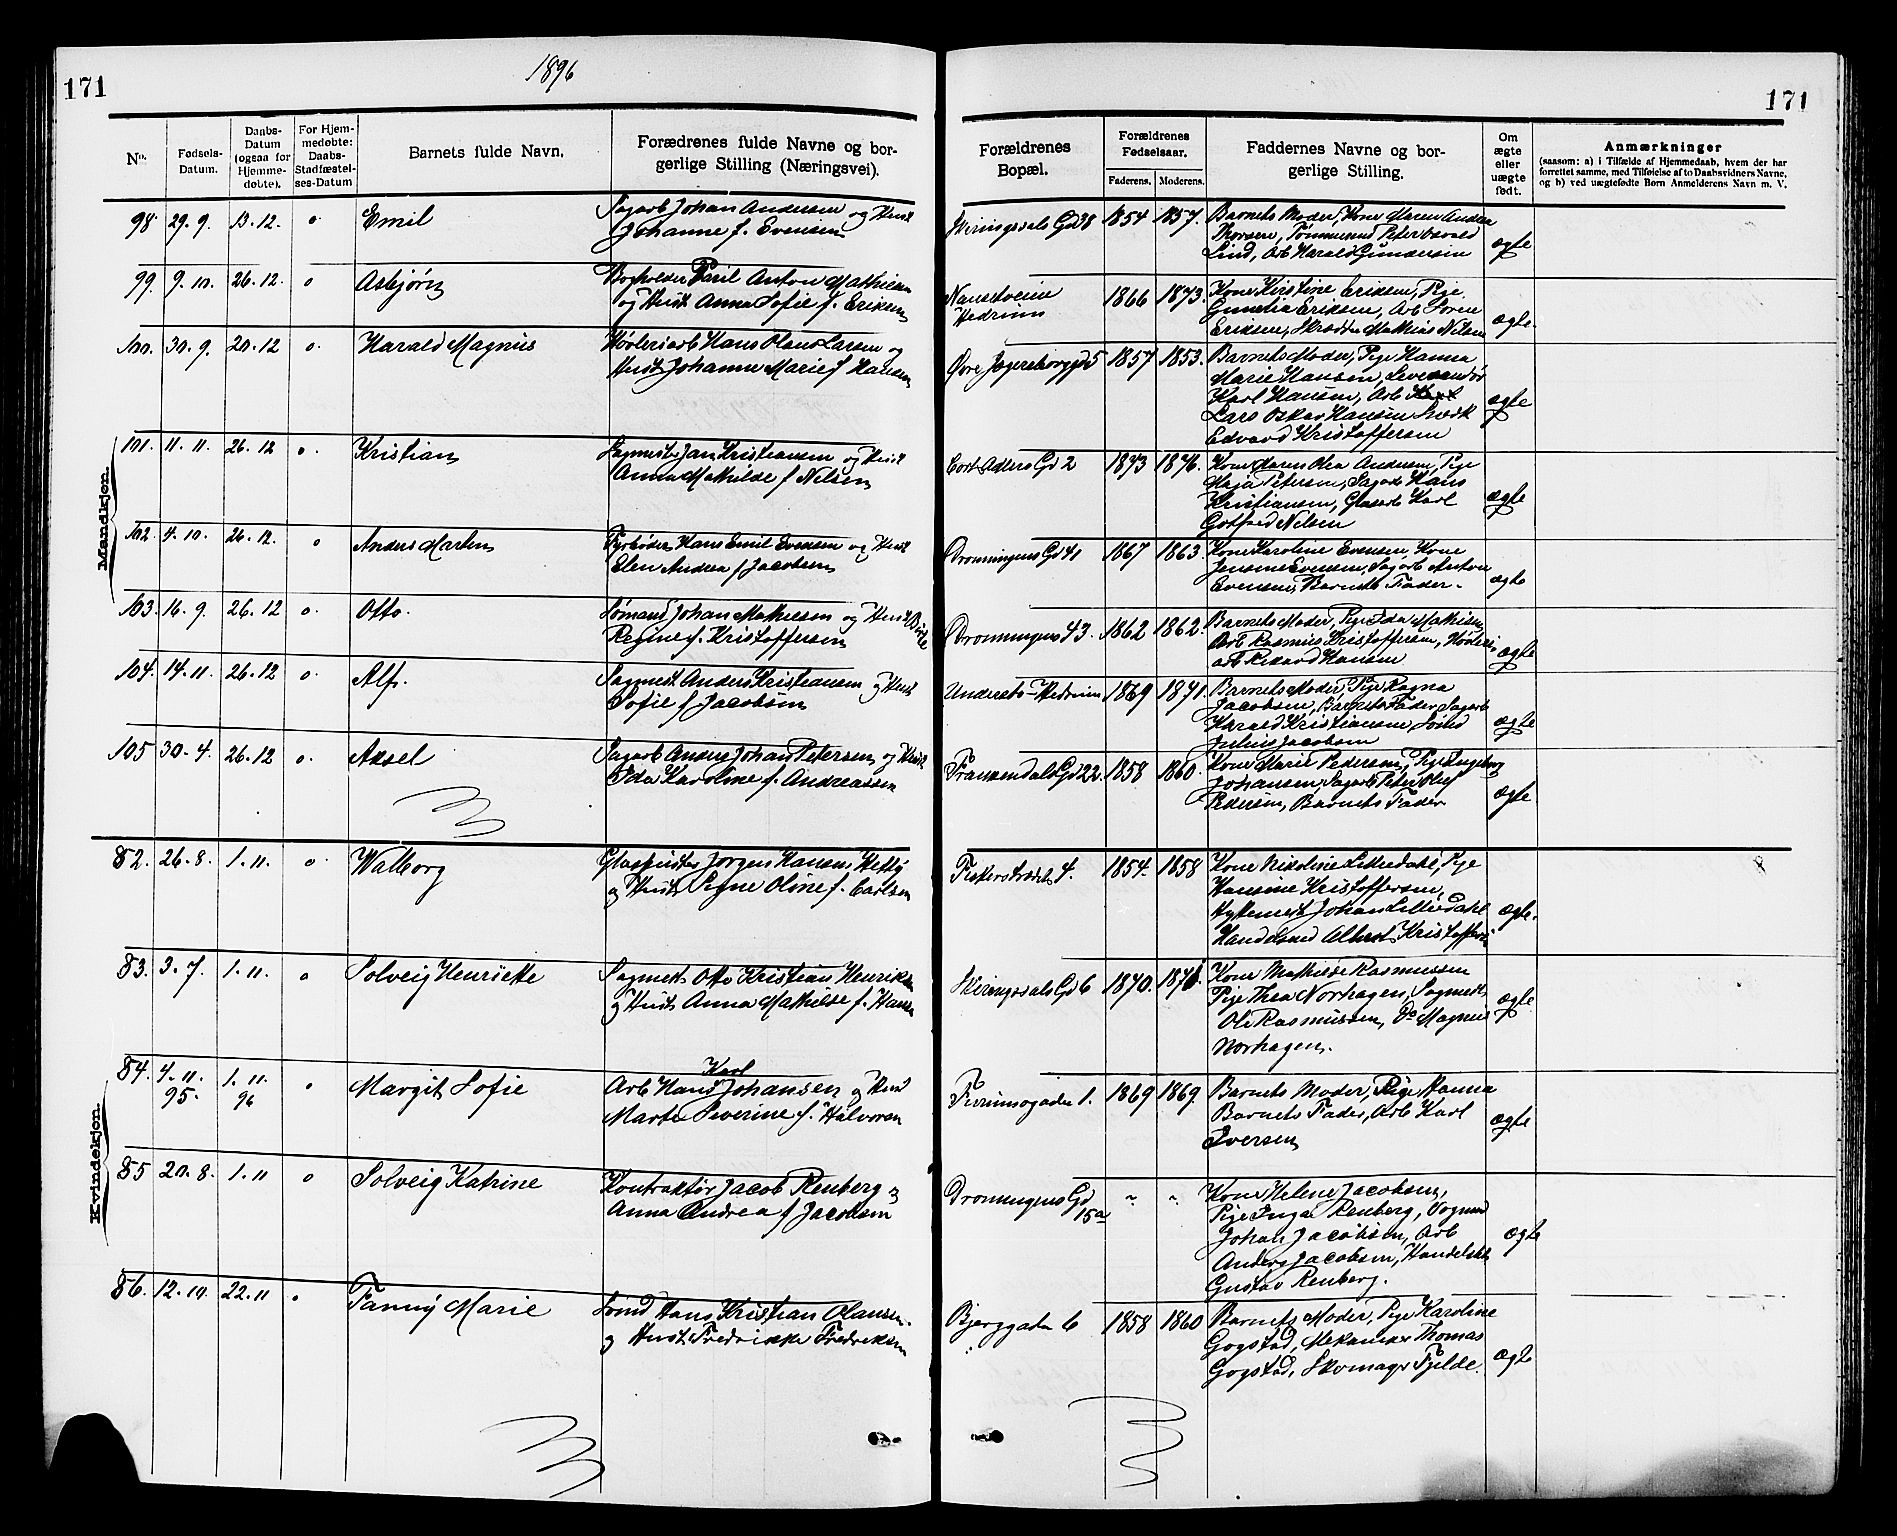 171
1896
171
No.
Fødsels-Datum.
Daabs-Datum (ogsaa for Hjemmedøbte).
For Hjemmedøbte: Daabs-Stadfæstelses-Datum
Barnets fulde Navn.
Forædrenes fulde Navne og borgerlige Stilling (Næringsvei).
Forældrenes Bopæl.
Forældrenes Fødselsaar.
Faderens. Moderens.
Faddernes Navne og borgerlige Stilling.
Om ægte eller uægte født.
Anmærkninger
(saasom: a) i Tilfælde af Hjemmedaab, hvem der har
forrettet samme, med Tilføielse af to Daabsvidners Navne,
og b) ved uægtefødte Børn Anmelderens Navn m. V.
Mandkjøn.
98 29.9. 13.12. o Emil
Sagarb Johan Andersen og Hust
Johanne f. Evensen
Gd 38 1854 1857.
Barnets Moder, Kone Maren Andrea
Thorsen, Tømmermd Peter
Lind, Arb Harald Gundersen
ægte
99. 9.10. 26.12. o Asbjørn
Bogholder Anton Mathisen
og Hust Anna Sofie f. Eriksen
Hedrum 1866 1873.
Kone Kirstine Eriksen, Pige
Eriksen, Arb Søren
Eriksen, Skrædder Mathias Nilsen
ægte.
100. 30.9. 20.12 o. Harald Magnus
Høvleriarb Hans Olaus Larsen og
Hust Johanne Marie f Hansen
Øvre Jegersborggd 5 1857 1853.
Barnets Moder, Pige Hanna
Marie Hansen,
Karl Hansen, Arb
Lars Oskar Hansen
Edvard Kristoffersen
ægte
101. 11.11. 26.12 o. Kristian
Sagmest Jan Kristiansen og Hust
Anna Mathilde f Nilsen
Cort Adlers Gd 2 1873 1876.
Kone Maren Olea Andersen, Pige
Maja Petersen, Sagarb Hans
Kristiansen, Glasarb Karl
Gotfred Nilsen
ægte
102. 4.10. 26.12. o Anders Marten
Fyrbøder Hans Emil Evensen og Hust
Elen Andrea f Jacobsen
Dronningens Gd 41 1867 1863.
Kone Karoline Evensen, Kone
Evensen, Sagarb Anton
Evensen, Barnets Fader.
ægte
103. 16.9. 26.12 o. Otto.
Sømand Johan Mathisen og Hust
Regine f. Kristoffersen
Dronningens 43. 1862 1862.
Barnets Moder, Pige Ida Mathisen
Arb Rasmus Kristoffersen, Høvleri
arb Hansen
ægte
104. 14.11. 26.12 o. Alf.
Sagmest Anders Kristiansen og Hust
Sofie f Jacobsen
Hedrum 1869 1871.
Barnets Moder, Pige Ragna
Jacobsen, Barnets Fader, Sagarb
Harald Kristiansen, Sømd
Julius Jacobsen
ægte
105 30.4. 26.12 o. Axel
Sagarb Anders Johan Petersen og Hust
Ida Karoline f. Andreassen
Franzendals Gd 22. 1858 1860.
Kone Marie Pedersen, Pige Ingeborg
Johansen, Sagarb Peter Olaf
Pedersen, Barnets Fader
ægte
Kvindekjøn.
82. 26.8. 1.11. o. Walborg
Glaspuster Jørgen Hansen
og Hust Signe Oline f. Carlsen
Fiskerstrædet 4. 1854. 1858
Kone Nikoline Lilledahl, Pige
Hansine Kristoffersen,
Johan Lilledahl
Albert Kristoffersen
ægte.
83. 3.7. 1.11. o Solveig Henriette
Sagmest Otto Kristian Henriksen
og Hust Anna Mathilde f. Hansen
Gd 6 1870.
Kone Mathilde Rasmussen
Pige Thea Norhagen, Sagmest
Ole Rasmussen, Do Magnus
Norhagen.
ægte
84. 4.11. 95. 1.11. 96 o Margit Sofie
Karl
Arb Hans Johansen og Hust
Marte Severine f. Halvorsen
1. 1869 1869.
Barnets Moder, Pige Hanna
Barnets Fader, Arb Karl
Iversen
ægte
85 20.8. 1.11 o Solveig Katrine
Kontraktør Jacob Renberg og
Anna Andrea f Jacobsen
Dronningens Gd
15a " "
Kone Helene Jacobsen,
Pige Inga Renberg,
Johan Jacobsen, Arb
Anders Jacobsen,
Gustav Renberg.
ægte
86. 12.10. 22.11 o Fanny Marie
Sømd Hans Kristian Olausen
og Hust Fredrikke Fredriksen
Bjerggaden 6 1858 1860
Barnets Moder, Pige Karoline
Gogstad, Mekaniker Thomas
Gogstad, Skomager Fjelde.
ægte